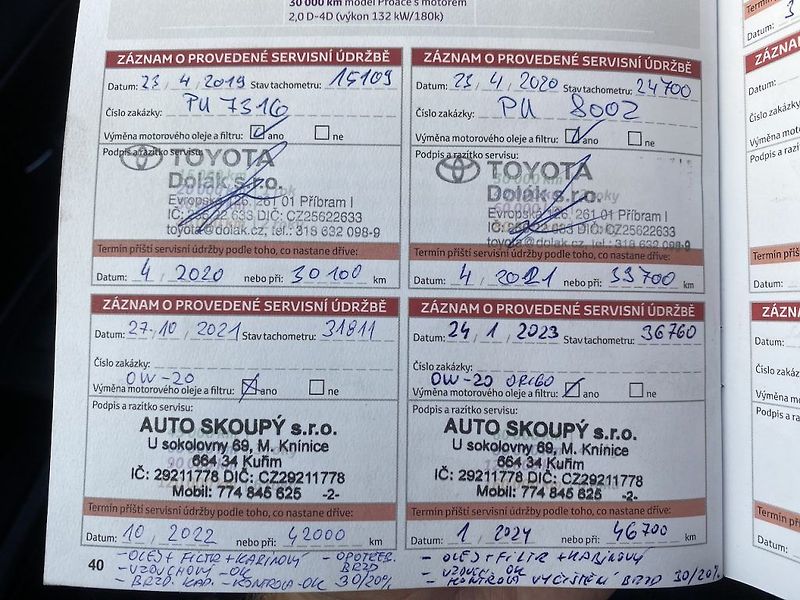 30 000 km model Proace s motorem
2,0 D-4D (výkon 132 kW/180k)
ZÁZNAM O PROVEDENÉ SERVISNÍ ÚDRŽBĚ
Datum: 23. 4. 2019 Stav tachometru: 15109
Číslo zakázky: PU 7316
Výměna motorového oleje a filtru: ano ne
Podpis a razítko servisu:
TOYOTA
Dolák s.r.o.
Evropská 126, 261 01 Příbram I
IČ: 25622633 DIČ: CZ25622633
toyota@dolak.cz, tel.: 318 632 098-9
Termín příští servisní údržby podle toho, co nastane dříve:
Datum: 4 2020 nebo při: 30100 km
ZÁZNAM O PROVEDENÉ SERVISNÍ ÚDRŽBĚ
Datum: 23. 4. 2020 Stav tachometru: 24700
Číslo zakázky: PU 8002
Výměna motorového oleje a filtru: ano ne
Podpis a razítko servisu:
TOYOTA
Dolák s.r.o.
Evropská 126, 261 01 Příbram I
IČ: 25622633 DIČ: CZ25622633
toyota@dolak.cz, tel.: 318 632 098-9
Termín příští servisní údržby podle toho, co nastane dříve:
Datum: 4 2021 nebo při: 39700 km
ZÁZNAM O PROVEDENÉ SERVISNÍ ÚDRŽBĚ
Datum: 27. 10 2021 Stav tachometru: 31811
Číslo zakázky:
0W-20
Výměna motorového oleje a filtru: ano ne
Podpis a razítko servisu:
AUTO SKOUPÝ s.r.o.
U sokolovny 69, M. Knínice
664 34 Kuřim
IČ: 29211778 DIČ: CZ29211778
Mobil: 774 845 625 -2-
Termín příští servisní údržby podle toho, co nastane dříve:
Datum: 10 2022 nebo při: 42000 km
- OLEJ + FILTR + KABINOVÝ - OPOTŘEB.
- VZDUCHOVÝ - OK BRZD
- BRZD. KAP. - KONTROLA - OK 30/20%
ZÁZNAM O PROVEDENÉ SERVISNÍ ÚDRŽBĚ
Datum: 24 1 2023 Stav tachometru: 36760
Číslo zakázky:
0W-20
Výměna motorového oleje a filtru: ano ne
Podpis a razítko servisu:
AUTO SKOUPÝ s.r.o.
U sokolovny 69, M. Knínice
664 34 Kuřim
IČ: 29211778 DIČ: CZ29211778
Mobil: 774 845 625 -2-
Termín příští servisní údržby podle toho, co nastane dříve:
Datum: 1 2024 nebo při: 46700 km
- OLEJ + FILTR + KABINOVÝ
- VZDUCH OK
- KONTROLA VYČIŠTĚNÍ BRZD 30/20%
40
Datum:
Číslo zakázky:
Výměna moto
Podpis a razít
Termín příští
Datum:
ZÁZNA
Datum:
Číslo zakáz
Výměna mo
Podpis a
Termín
Datum: